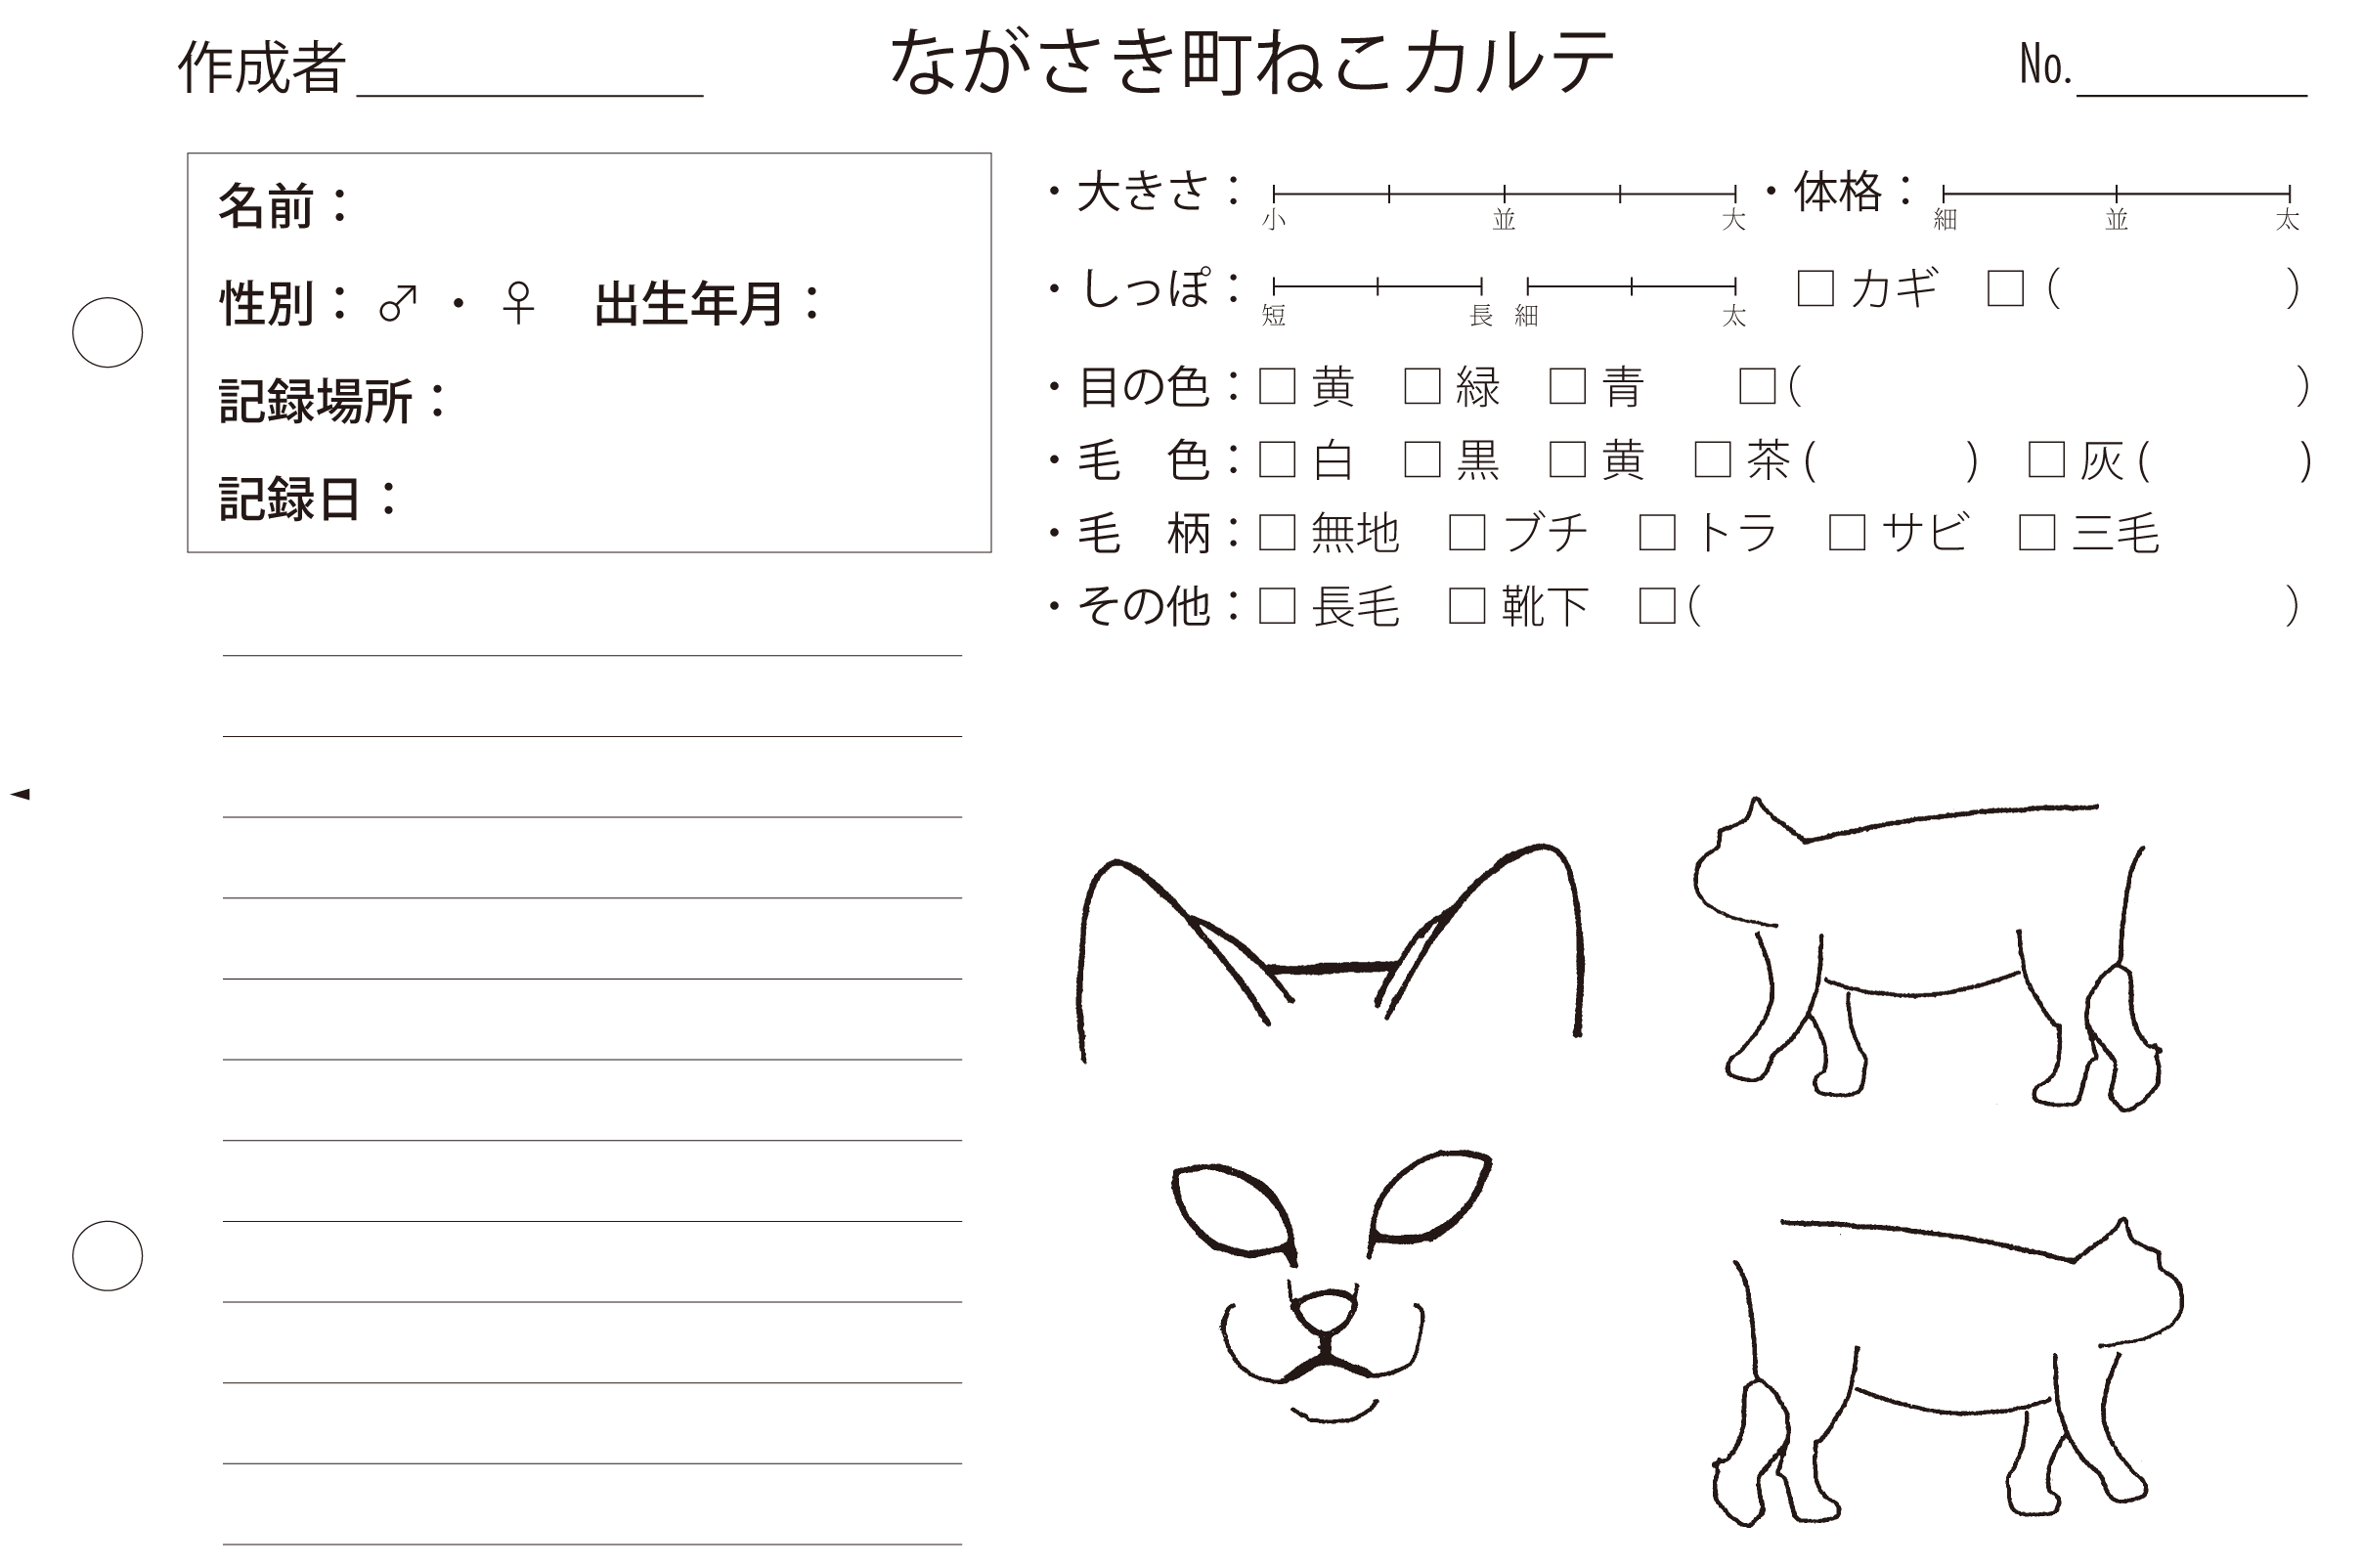 作成者 ながさき町ねこカルテ No.
名前：
性別：♂・♀ 出生年月：
記録場所：
記録日：
・大きさ： 小 並 大 ・体格： 細 並 太
・しっぽ： 短 長 細 太 □ カギ □ （ ）
・目の色：□ 黄 □ 緑 □ 青 □（ ）
・毛　色：□ 白 □ 黒 □ 黄 □ 茶（ ） □ 灰（ ）
・毛　柄：□ 無地 □ ブチ □ トラ □ サビ □ 三毛
・その他：□ 長毛 □ 靴下 □（ ）